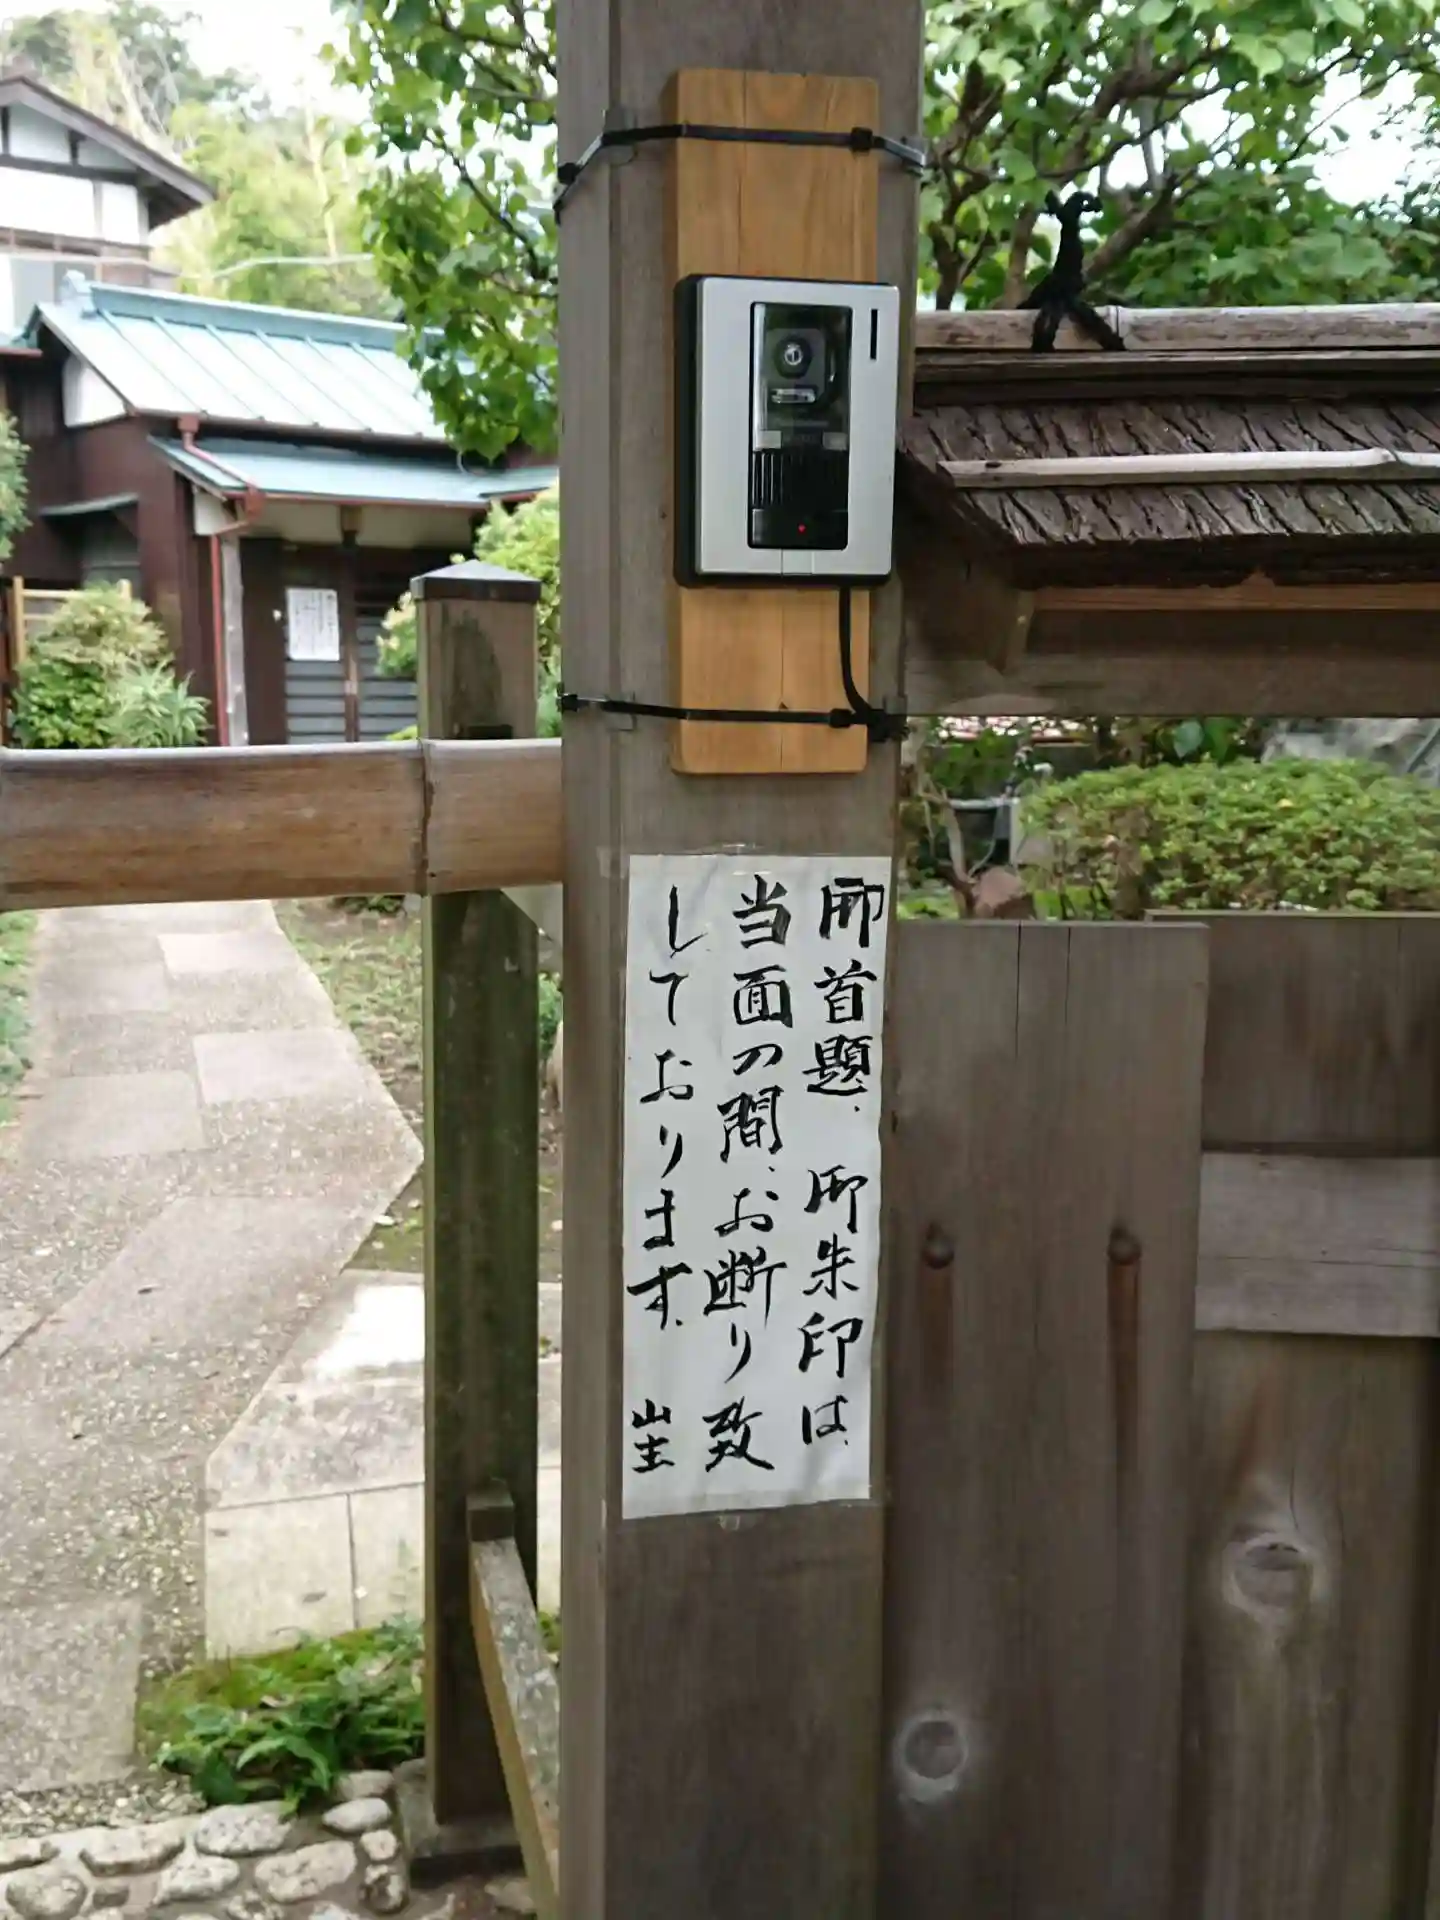 御首題、御朱印は、
当面の間、お断り致
しております。 山主